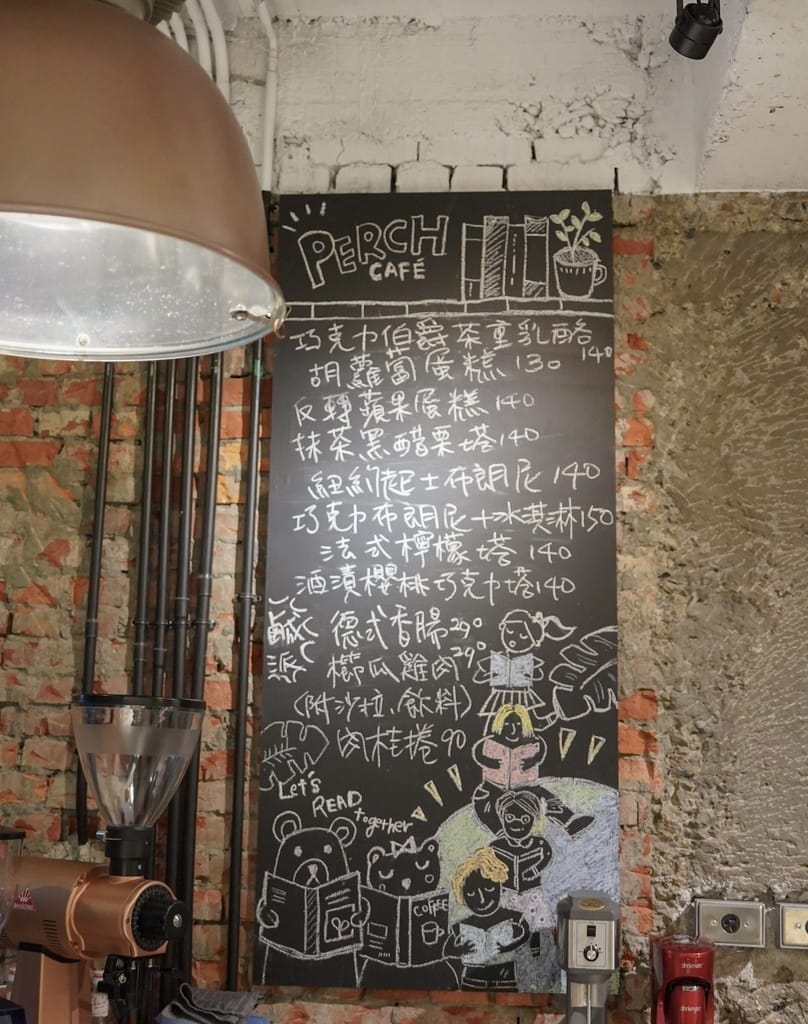 PERCH
CAFÉ
巧克力伯爵茶重乳酪 140
胡蘿蔔蛋糕 130
反轉蘋果蛋糕 140
抹茶黑醋栗塔 140
紐約起士布朗尼 140
巧克力布朗尼+冰淇淋 150
法式檸檬塔 140
酒漬櫻桃巧克力塔 140
鹹派
德式香腸 290
櫛瓜雞肉 290
(附沙拉、飲料)
肉桂捲 90
Let's
READ
together
COFFEE